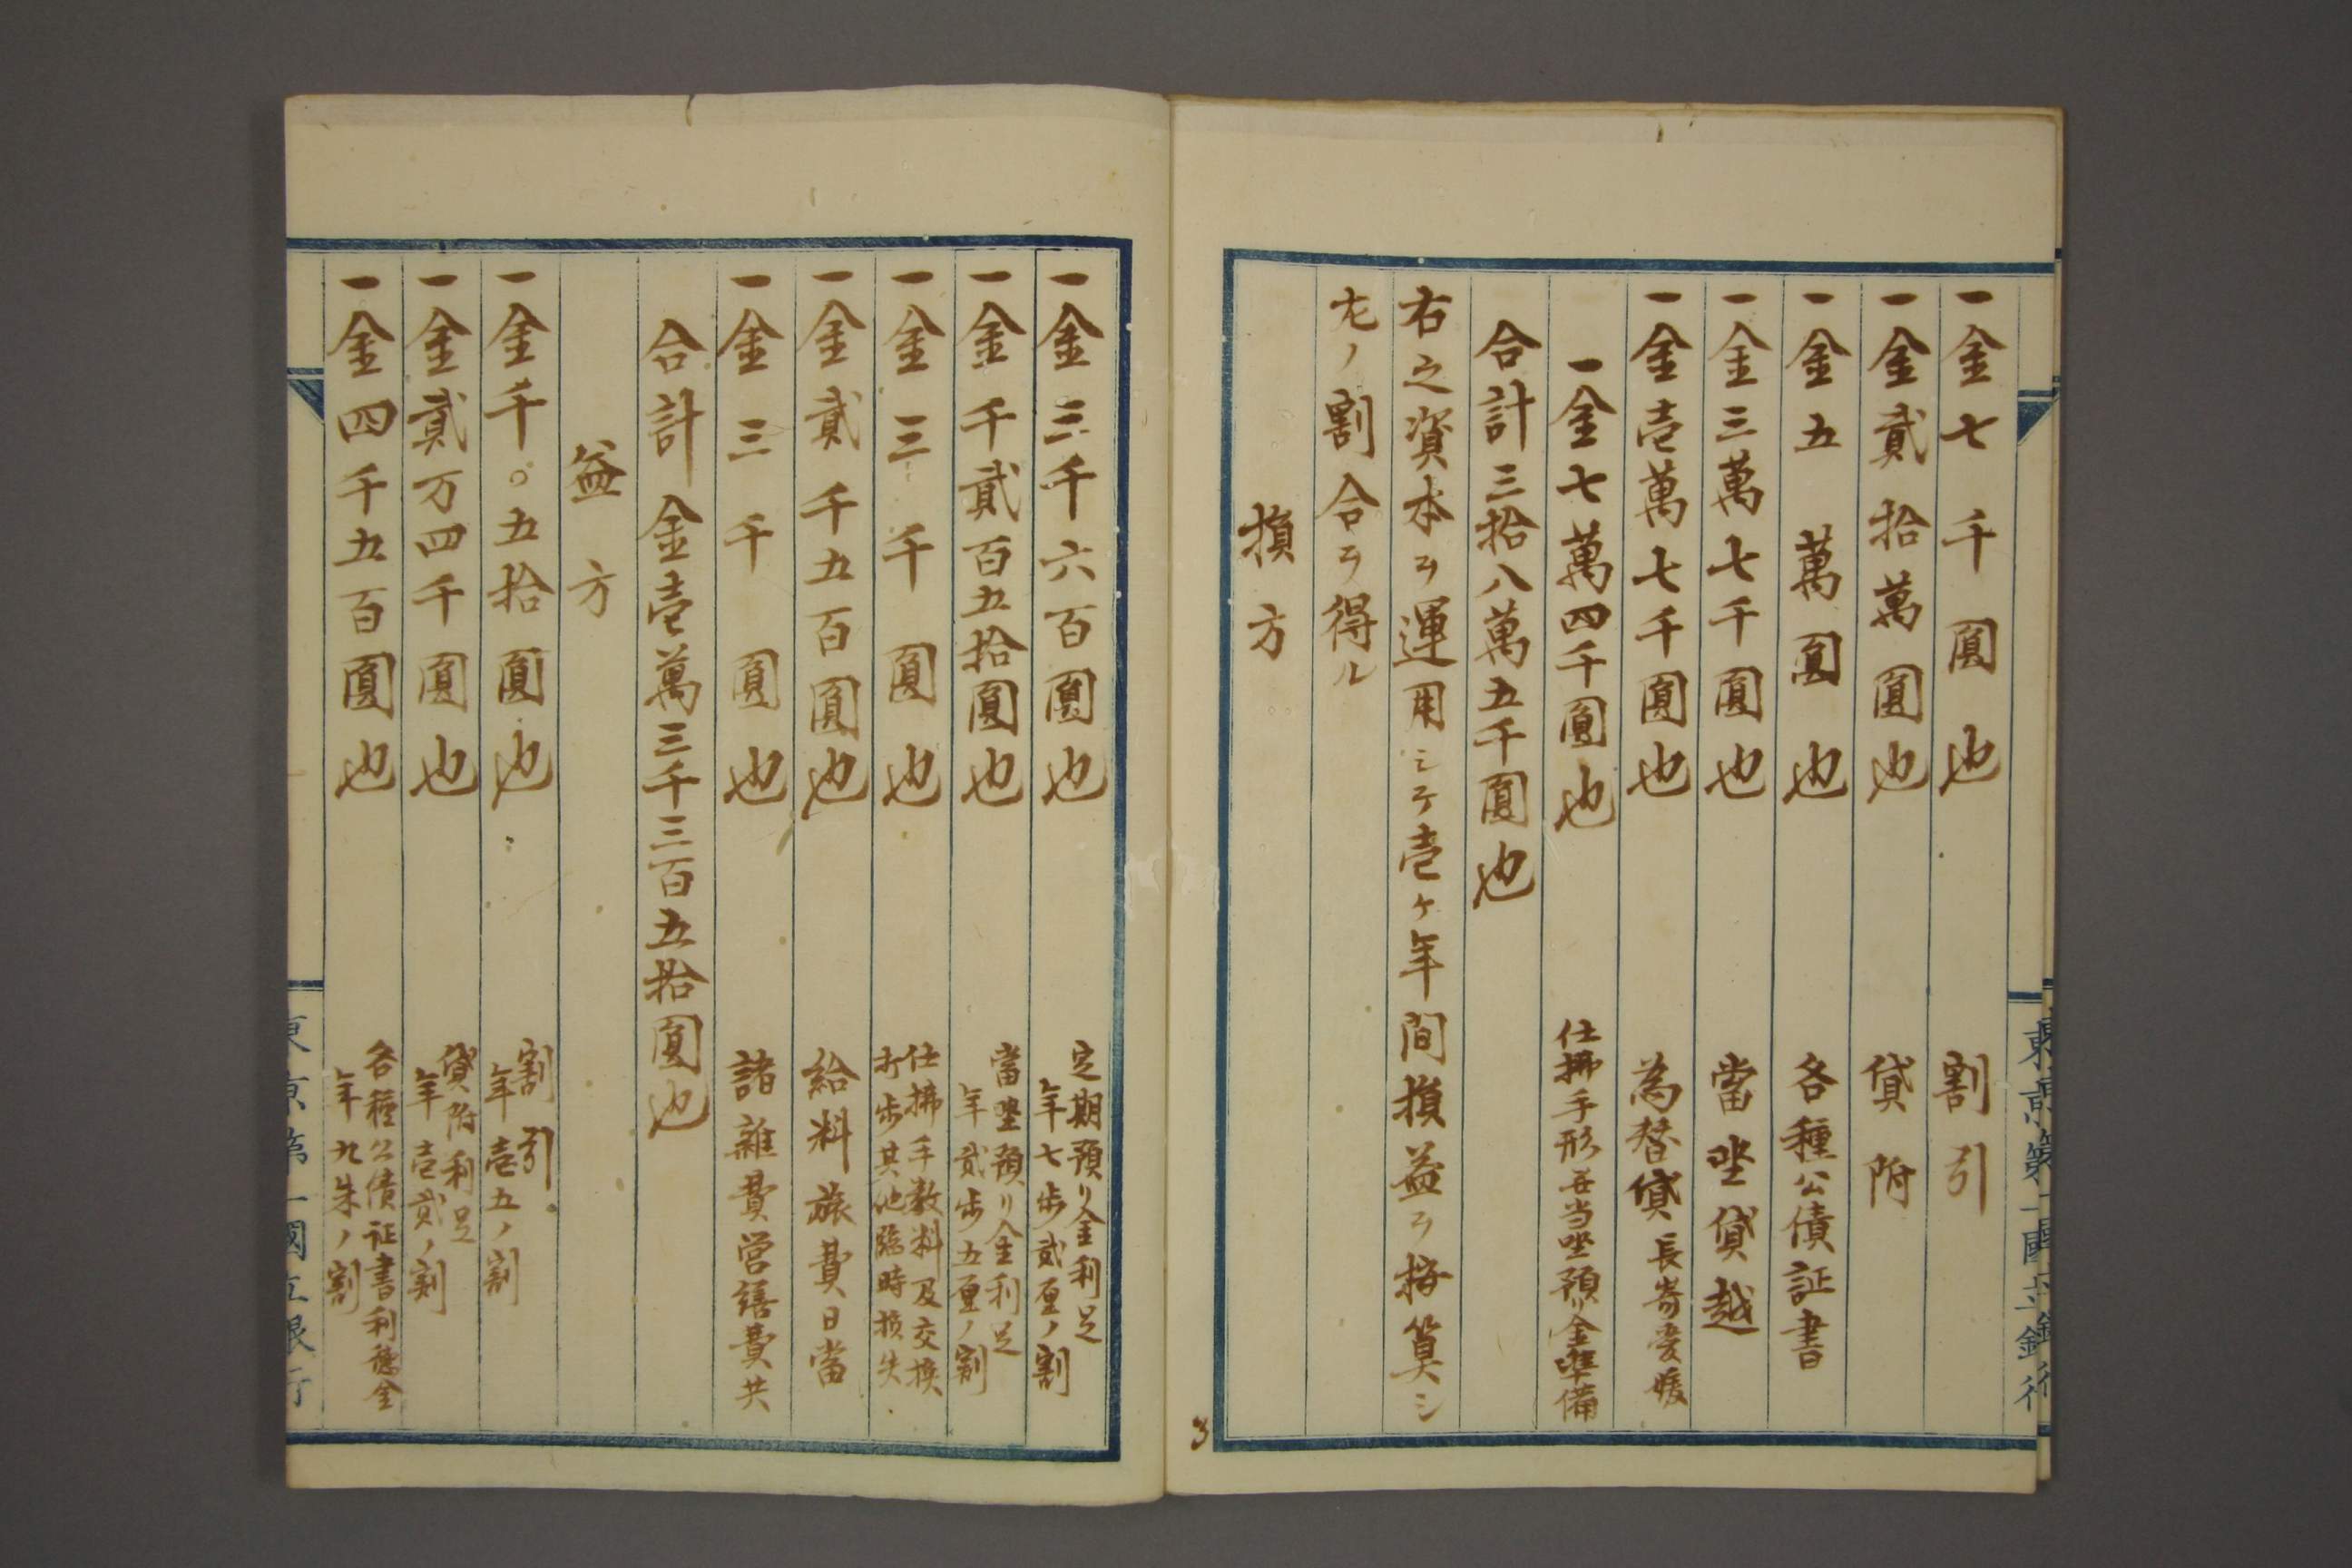 一金七千圓也　割引
一金貳拾萬圓也　貸附
一金五萬圓也　各種公債証書
一金三萬七千圓也　當坐貸越
一金壱萬七千圓也　為替貸
一金七萬四千圓也　仕拂手形并当坐預リ金準備
合計三拾八萬五千圓也
右之資本ヲ運用シテ壱ケ年間損益ヲ概算シ
左ノ割合ヲ得ル
損方
3
東京第一國立銀行
一金三千六百圓也　定期預リ金利足
年七歩貳厘ノ割
一金千貳百五拾圓也　當坐預リ金利足
年貳歩五厘ノ割
一金三千圓也　仕拂手数料及交換
打歩其他臨時損失
一金貳千五百圓也　給料旅費日當
一金三千圓也　諸雜費営繕費共
合計金壱萬三千三百五拾圓也
益方
一金千〇五拾圓也　割引
年壱五ノ割
一金貳万四千圓也　貸附利足
年壱貳ノ割
一金四千五百圓也　各種公債証書利穂金
年九朱ノ割
東京第一國立銀行